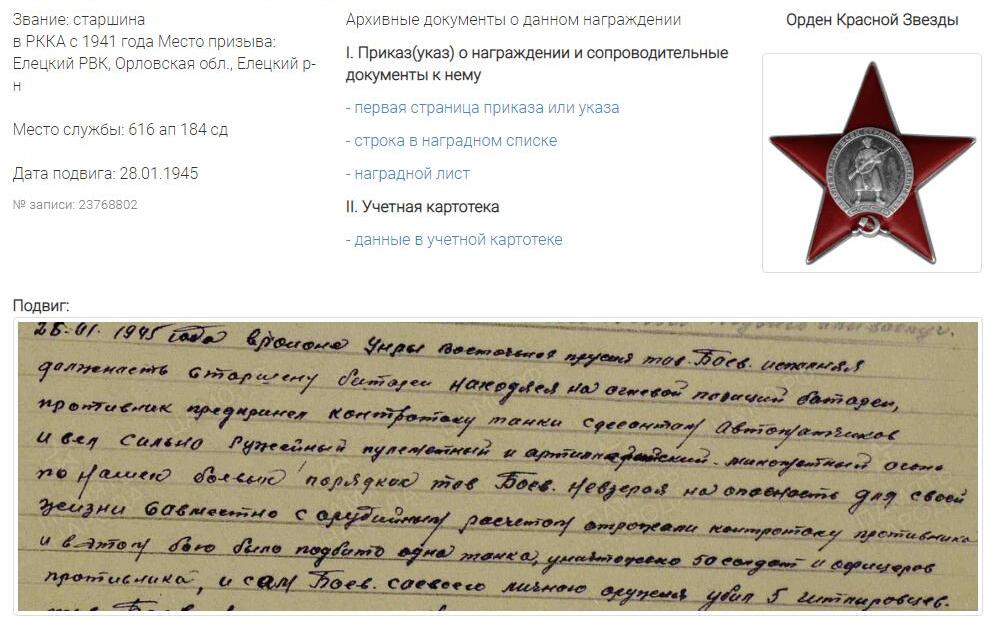 Звание: старшина
в РККА с 1941 года Место призыва:
Елецкий РВК, Орловская обл., Елецкий р-
н
Место службы: 616 ап 184 сд
Дата подвига: 28.01.1945
№ записи: 23768802
Архивные документы о данном награждении
I. Приказ(указ) о награждении и сопроводительные
документы к нему
- первая страница приказа или указа
- строка в наградном списке
- наградной лист
II. Учетная картотека
- данные в учетной картотеке
Орден Красной Звезды
Подвиг:
28.01. 1945 года в районе Унры восточная прусия тов. Боев. исполняя
должность старшену батареи находяся на огневой позиций батареи,
противник предпринел контротаку танки сдесантом автоматчиков
и вел сильно ружейный пулеметный и минометный огонь
по нашем боевым порядкам тов Боев. невзерая на опасность для своей
жизни савместно с орудийным расчетом отрожали контротаку противника
и в этом бою было подбито одна танка, уничтожено 50 солдат и офицеров
противника, и сам Боев. соевоего личного оружия убил 5 гитлировцев.
тов Боев